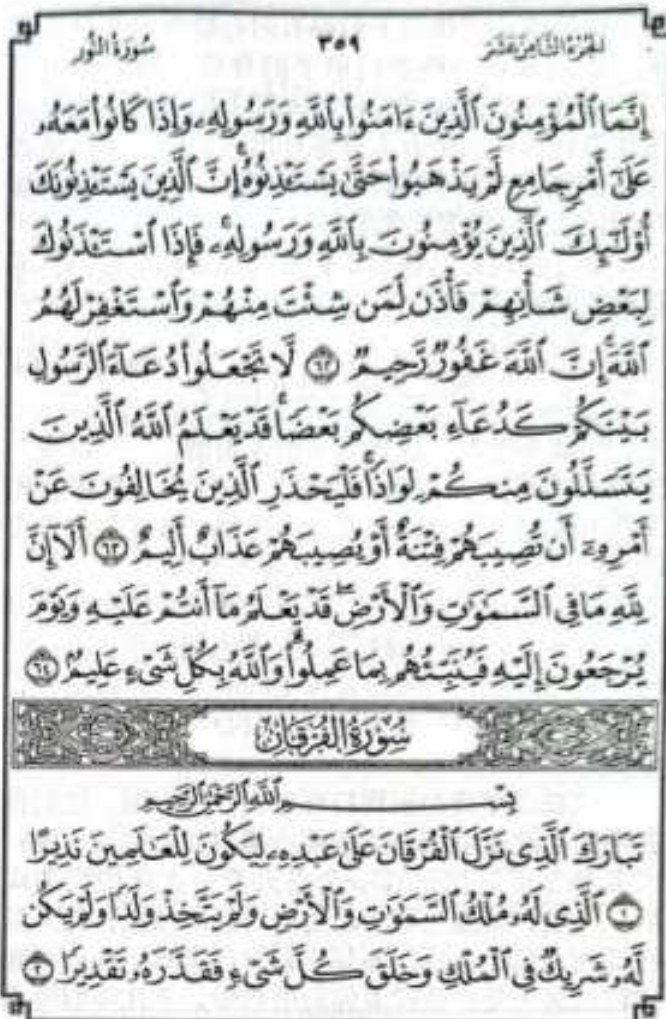 الجزء الثامن عشر ٣٥٩ سورة النور
إِنَّمَا ٱلْمُؤْمِنُونَ ٱلَّذِينَ ءَامَنُوا۟ بِٱللَّهِ وَرَسُولِهِۦ وَإِذَا كَانُوا۟ مَعَهُۥ
عَلَىٰٓ أَمْرٍ جَامِعٍ لَّمْ يَذْهَبُوا۟ حَتَّىٰ يَسْتَـْٔذِنُوهُ ۚ إِنَّ ٱلَّذِينَ يَسْتَـْٔذِنُونَكَ
أُو۟لَـٰٓئِكَ ٱلَّذِينَ يُؤْمِنُونَ بِٱللَّهِ وَرَسُولِهِۦ ۚ فَإِذَا ٱسْتَـْٔذَنُوكَ
لِبَعْضِ شَأْنِهِمْ فَأْذَن لِّمَن شِئْتَ مِنْهُمْ وَٱسْتَغْفِرْ لَهُمُ
ٱللَّهَ ۚ إِنَّ ٱللَّهَ غَفُورٌ رَّحِيمٌ ٦٢ لَّا تَجْعَلُوا۟ دُعَآءَ ٱلرَّسُولِ
بَيْنَكُمْ كَدُعَآءِ بَعْضِكُم بَعْضًا ۚ قَدْ يَعْلَمُ ٱللَّهُ ٱلَّذِينَ
يَتَسَلَّلُونَ مِنكُمْ لِوَاذًا ۚ فَلْيَحْذَرِ ٱلَّذِينَ يُخَالِفُونَ عَنْ
أَمْرِهِۦٓ أَن تُصِيبَهُمْ فِتْنَةٌ أَوْ يُصِيبَهُمْ عَذَابٌ أَلِيمٌ ٦٣ أَلَآ إِنَّ
لِلَّهِ مَا فِى ٱلسَّمَـٰوَٰتِ وَٱلْأَرْضِ ۖ قَدْ يَعْلَمُ مَآ أَنتُمْ عَلَيْهِ وَيَوْمَ
يُرْجَعُونَ إِلَيْهِ فَيُنَبِّئُهُم بِمَا عَمِلُوا۟ ۗ وَٱللَّهُ بِكُلِّ شَىْءٍ عَلِيمٌۢ ٦٤
سُورَةُ الْفُرْقَانِ
بِسْمِ اللَّهِ الرَّحْمَٰنِ الرَّحِيمِ
تَبَارَكَ ٱلَّذِى نَزَّلَ ٱلْفُرْقَانَ عَلَىٰ عَبْدِهِۦ لِيَكُونَ لِلْعَـٰلَمِينَ نَذِيرًا
١ ٱلَّذِى لَهُۥ مُلْكُ ٱلسَّمَـٰوَٰتِ وَٱلْأَرْضِ وَلَمْ يَتَّخِذْ وَلَدًا وَلَمْ يَكُن
لَّهُۥ شَرِيكٌ فِى ٱلْمُلْكِ وَخَلَقَ كُلَّ شَىْءٍ فَقَدَّرَهُۥ تَقْدِيرًا ٢